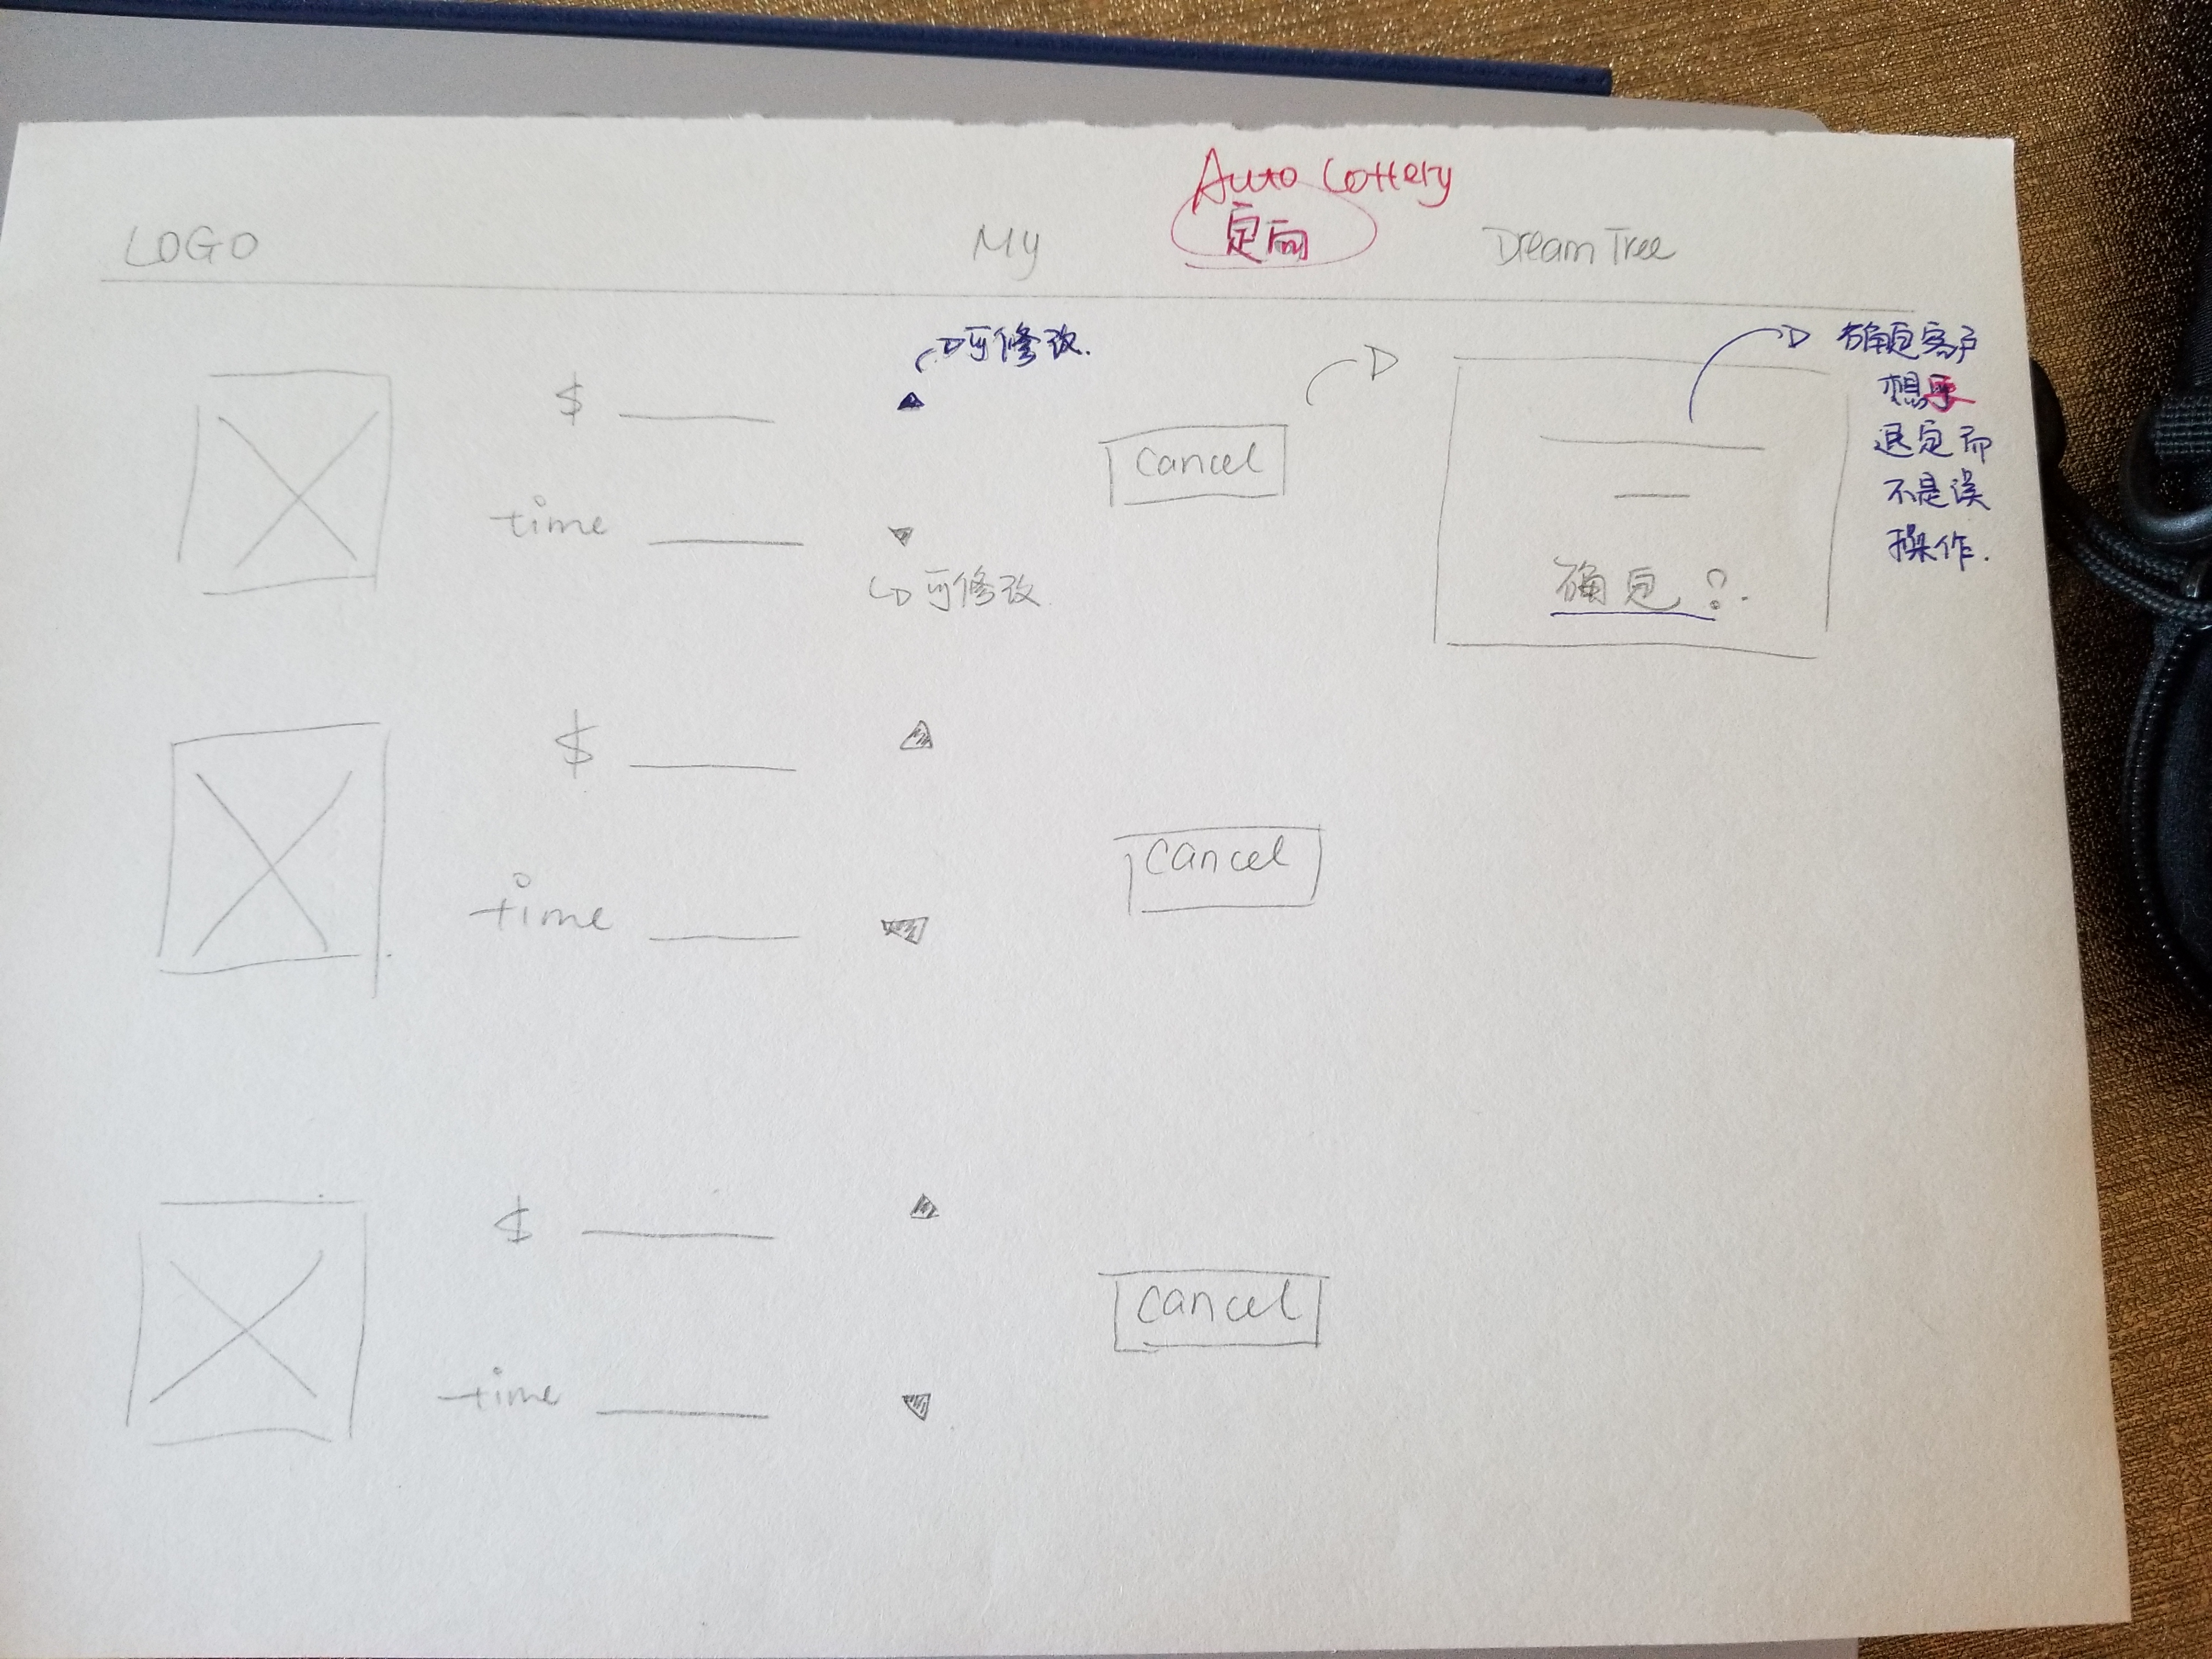 LOGO My Auto Lottery Dream Tree
定向
可修改.
$
time
可修改
cancel
确定?
确定客户
想
退定而
不是误
操作.
$
time
cancel
$
time
cancel